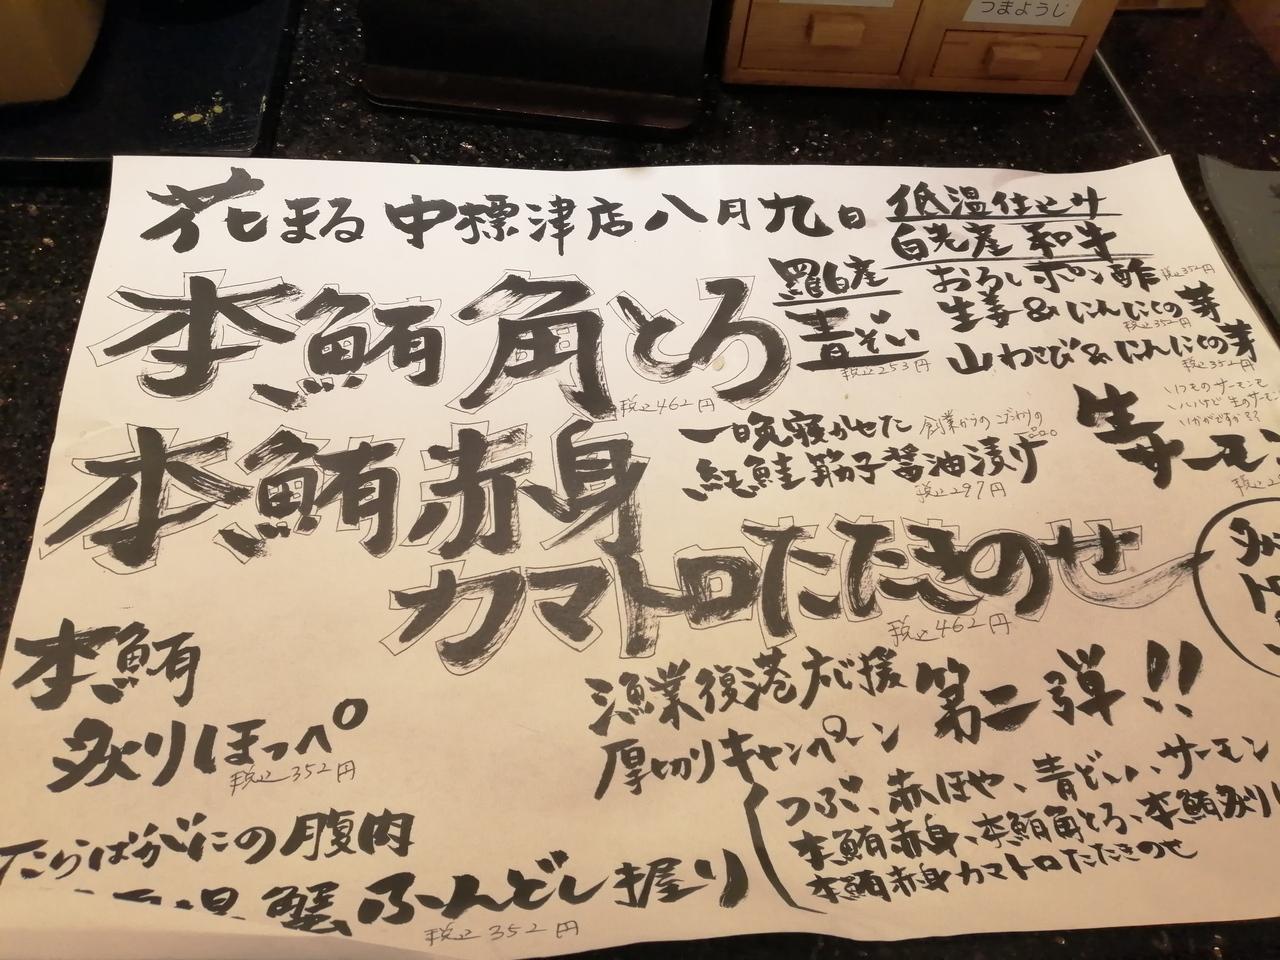 つまようじ
花まる 中標津店 八月九日
低温仕込み
白老産 和牛
おろしポン酢 税込352円
生姜&にんにくの芽
税込352円
山わさび&にんにくの芽
税込352円
羅臼産
青ぞい
税込253円
本鮪角とろ
税込462円
一晩寝かせた
創業からのこだわりの
紅鮭筋子醤油漬け
税込297円
いつものサーモンも
いいけど生のサーモン
いかがですか
生サーモン
本鮪赤身
カマトロたたきのせ
税込462円
本鮪
炙りほっぺ
税込352円
漁業復港応援 第二弾!!
厚切りキャンペーン
つぶ、赤ほや、青ぞい、サーモン
本鮪赤身、本鮪角とろ、本鮪炙り
本鮪赤身カマトロたたきのせ
たらばがにの腹肉
蟹ふんどし握り
税込352円